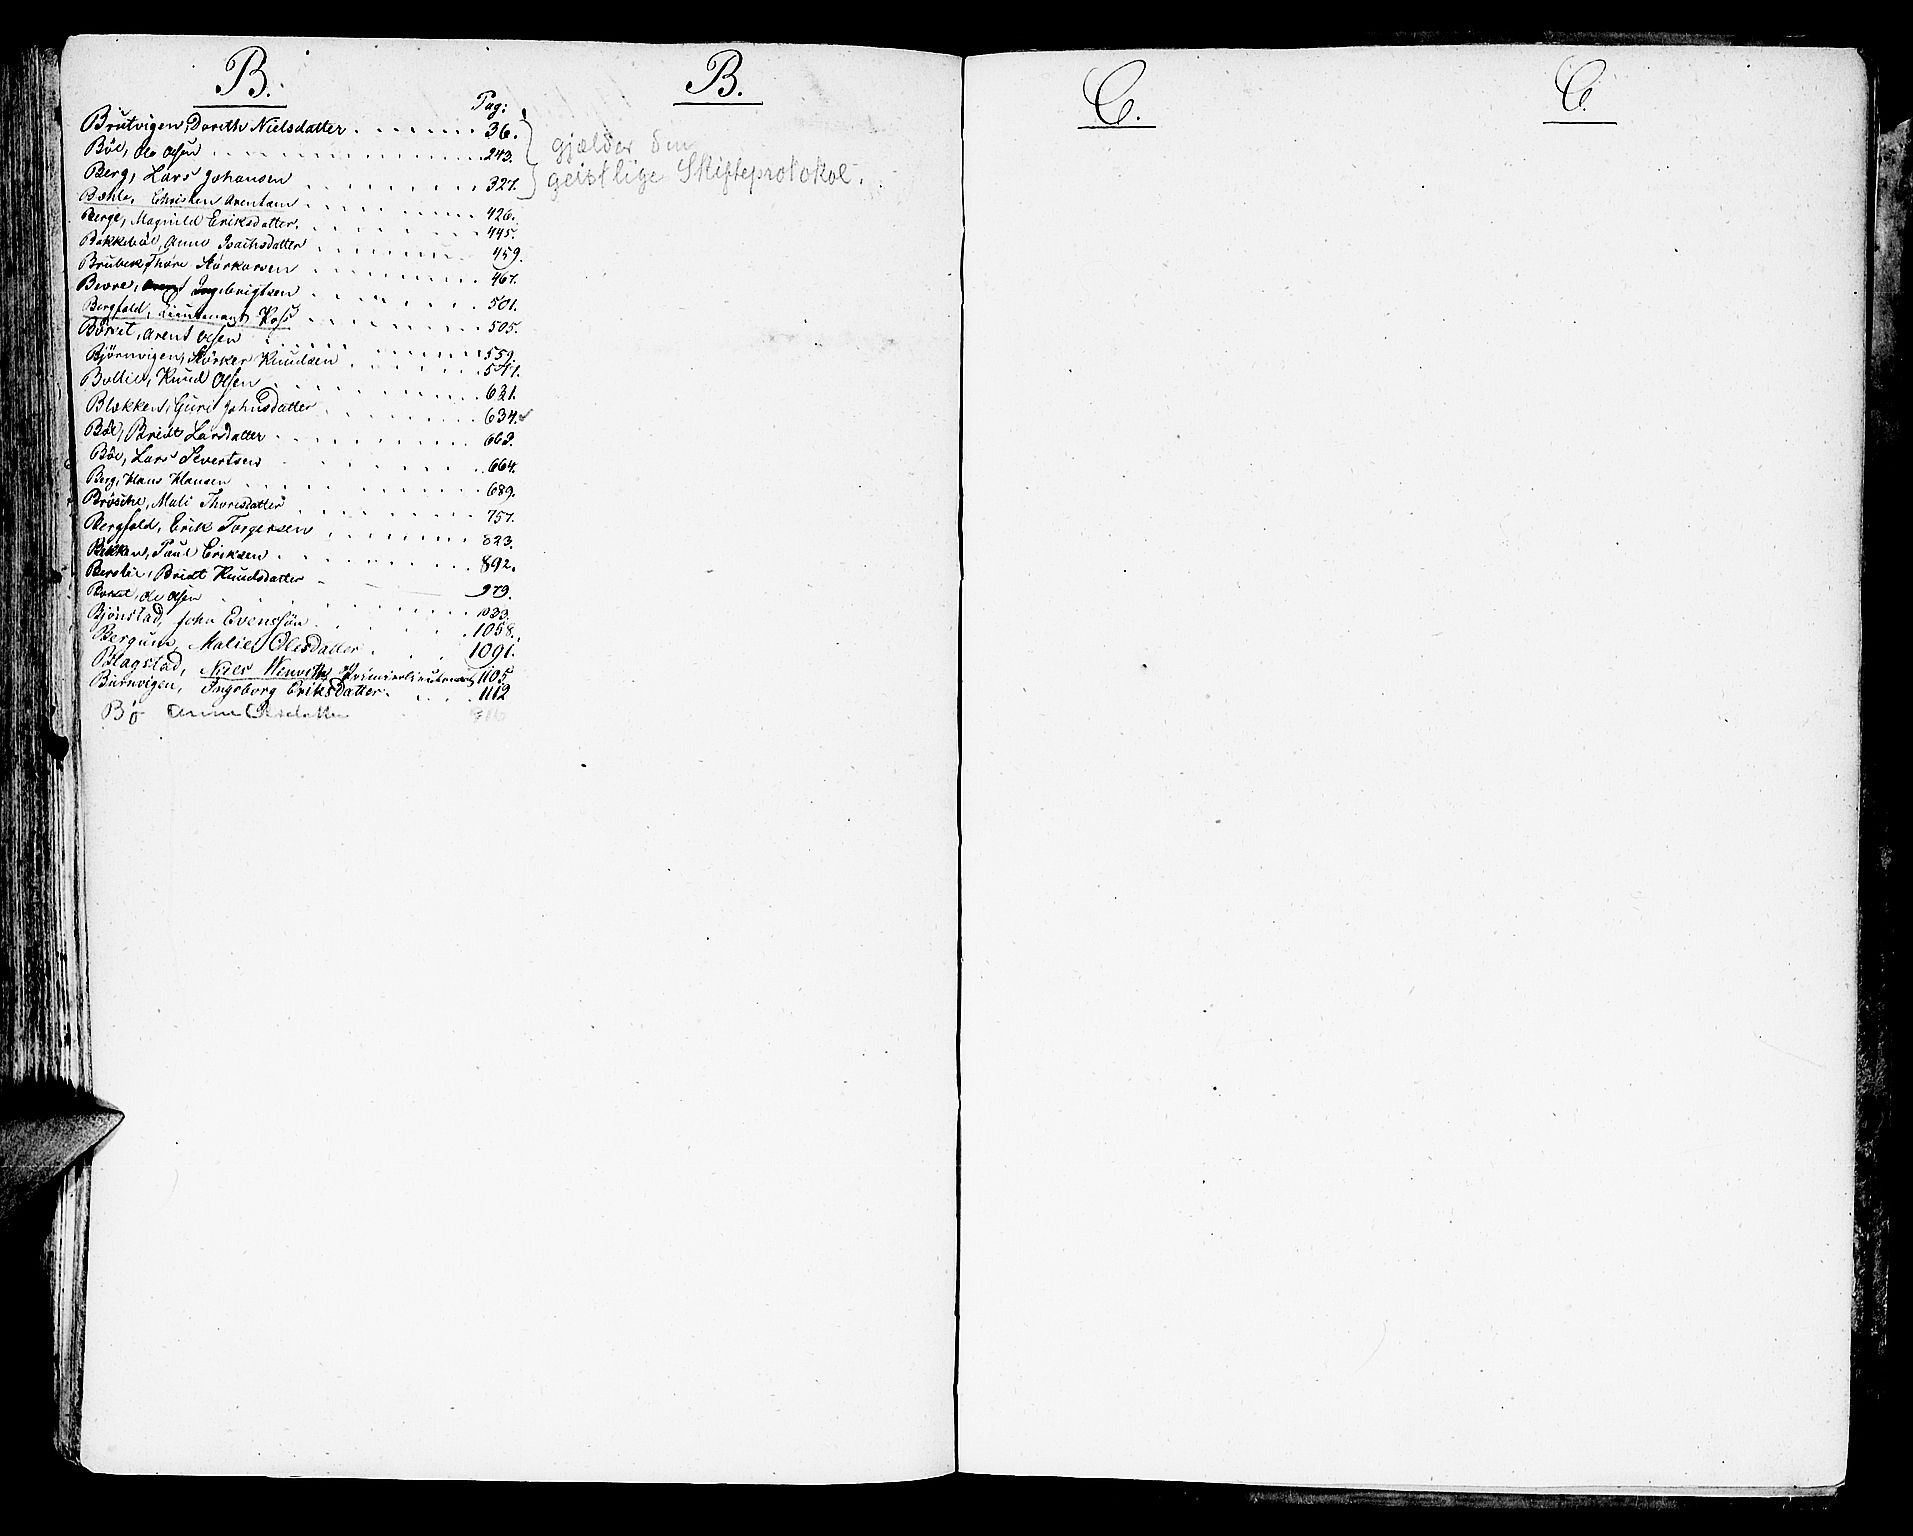 B.
Pag:
Brutvigen, Dorith Nielsdatter 36.
Böe, Ole Olsen 243.
Berg, Lars Johansen 327.
Bæhle, Christen Arentsen 426.
Berge, Magnild Eriksdatter. 445.
Bakkeböe, Anne Isachsdatter 459.
Brubek, Thore Störkersen 467.
Bevre, Ingebrigtsen 501.
Bergfald, Lieutenant Koss 505.
Börset, Arent Olsen 559.
Bjørnvigen, Störker Knudsen 571.
Bollie, Knud Olsen 621.
Blekken, Guri Johnsdatter 634.
Böe, Bridt Larsdatter 663.
Böe, Lars Sivertsen 664.
Berg, Hans Hansen 689.
Brøske, Mali Thoresdatter 757.
Bergfald, Erik Torgersen 823.
Bekken, Paul Eriksen 892.
Berslie, Bridt Knudsdatter 979.
Ole Olsen 1033.
Bjönstad, John Evensøn 1058.
Bergum, Malie Olesdatter 1091.
Blagstad, Niels Premierlieutenant 1105.
Burnvigen, Ingeborg Eriksdatter. 1112
Bö Anne Olesdatter 916
B.
gjælder den
geistlige Skifteprotokol.
C.
C.